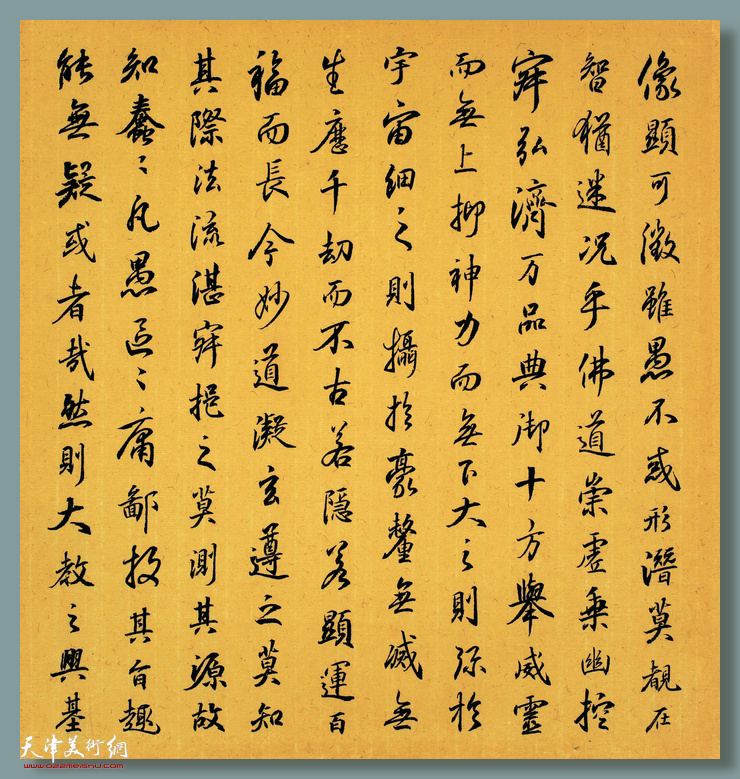 像顯可徵雖愚不惑形潛莫覩在
智猶迷況乎佛道崇虛乘幽控
寂弘濟万品典御十方舉威靈
而無上抑神力而無下大之則弥於
宇宙細之則攝於豪釐無滅無
生歷千劫而不古若隱若顯運百
福而長今妙道凝玄遵之莫知
其際法流湛寂挹之莫測其源故
知蠢〻凡愚區〻庸鄙投其旨趣
能無疑或者哉然則大教之興基
天津美術網
www.022meishu.com